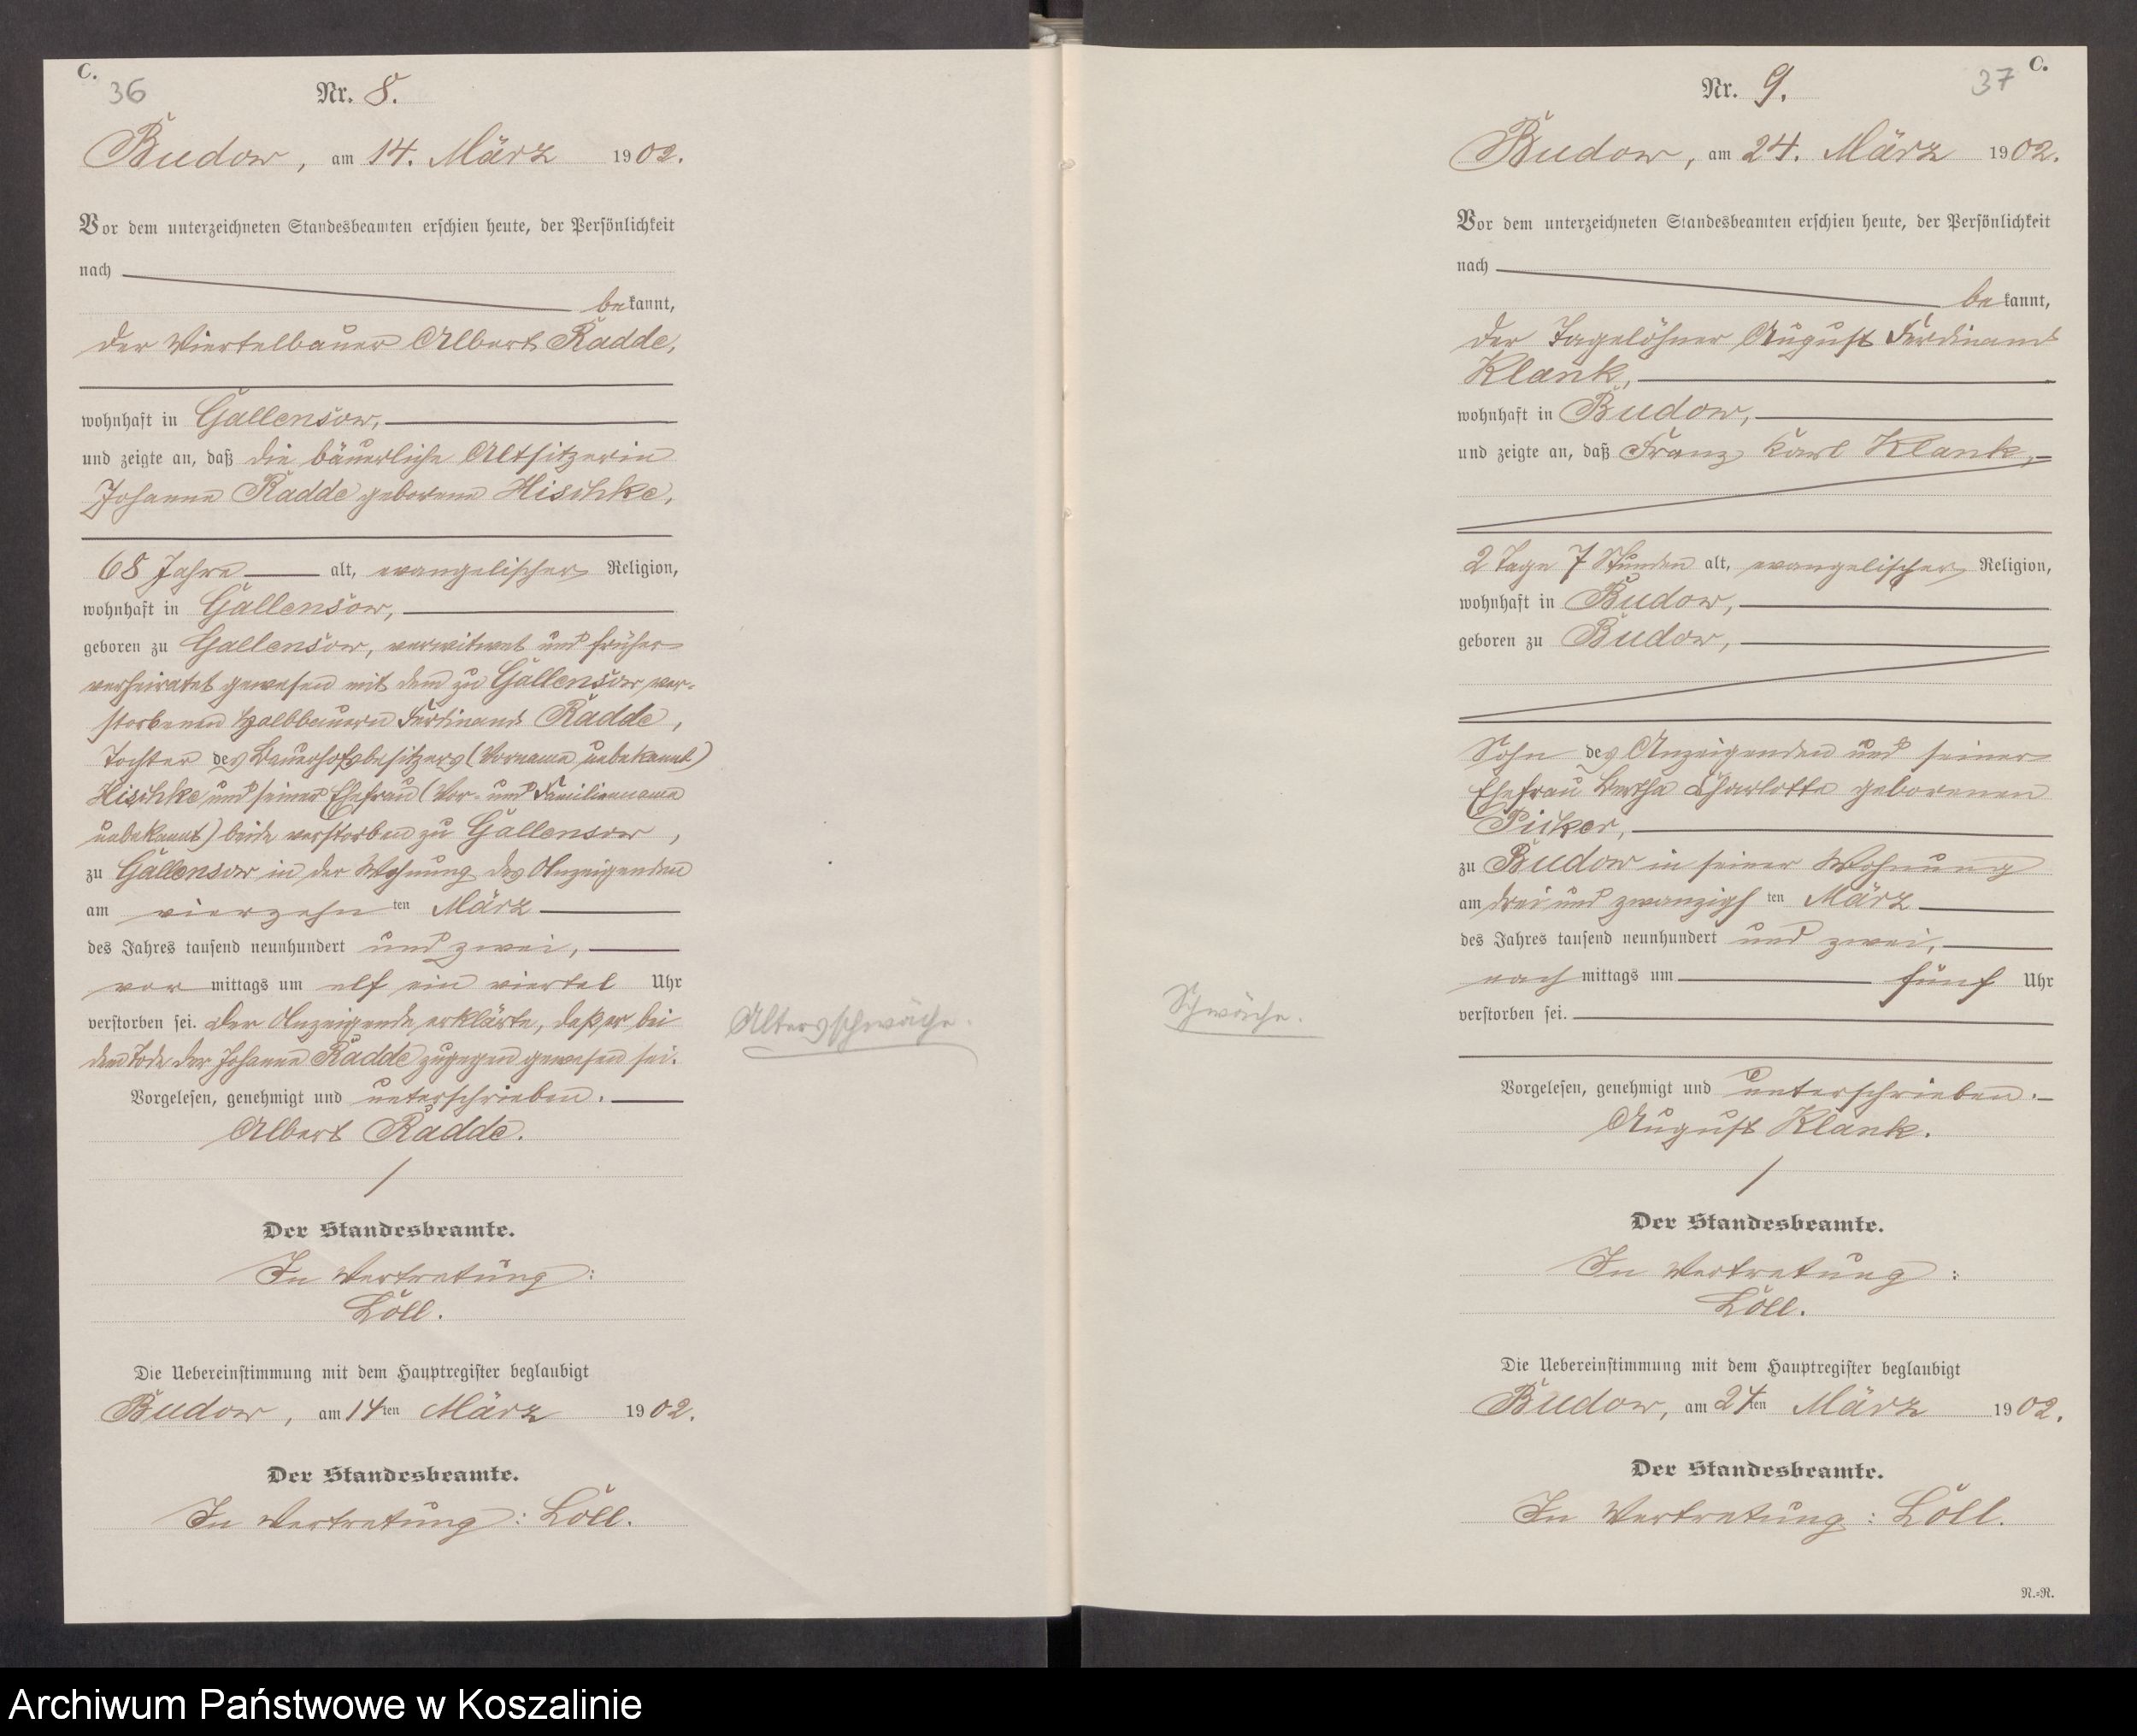 C.
36
Nr. 8.
Budow, am 14. März 1902.
Vor dem unterzeichneten Standesbeamten erschien heute, der Persönlichkeit
nach
bekannt,
der Viertelbauer Albert Radde,
wohnhaft in Gallensow,
und zeigte an, daß die bäuerliche Altsitzerin
Johanne Radde geborene Hischke,
68 Jahre alt, evangelischer Religion,
wohnhaft in Gallensow,
geboren zu Gallensow, verwitwet und früher
verheiratet gewesen mit dem zu Gallensow ver-
storbenen Halbbauern Ferdinand Radde,
Tochter des Bauerhofsbesitzers (Vorname unbekannt)
Hischke und seiner Ehefrau (Vor- und Familienname
unbekannt) beide verstorben zu Gallensow,
zu Gallensow in der Wohnung des Anzeigenden
am vierzehnten März
des Jahres tausend neunhundert und zwei,
vormittags um elf ein viertel Uhr
verstorben sei. Der Anzeigende erklärte, daß er bei
dem Tode der Johanne Radde zugegen gewesen sei.
Vorgelesen, genehmigt und unterschrieben.
Albert Radde.
Der Standesbeamte.
In Vertretung:
Löll.
Die Uebereinstimmung mit dem Hauptregister beglaubigt
Budow, am 14ten März 1902.
Der Standesbeamte.
In Vertretung: Löll.
Altersschwäche.
C.
37
Nr. 9.
Budow, am 24. März 1902.
Vor dem unterzeichneten Standesbeamten erschien heute, der Persönlichkeit
nach
bekannt,
der Tagelöhner August Ferdinand
Klank,
wohnhaft in Budow,
und zeigte an, daß Franz Karl Klank,
2 Tage 7 Stunden alt, evangelischer Religion,
wohnhaft in Budow,
geboren zu Budow,
Sohn des Anzeigenden und seiner
Ehefrau Bertha Charlotte geborenen
Picker,
zu Budow in seiner Wohnung
am drei und zwanzigsten März
des Jahres tausend neunhundert und zwei,
nachmittags um fünf Uhr
verstorben sei.
Schwäche.
Vorgelesen, genehmigt und unterschrieben.
August Klank.
Der Standesbeamte.
In Vertretung:
Löll.
Die Uebereinstimmung mit dem Hauptregister beglaubigt
Budow, am 24ten März 1902.
Der Standesbeamte.
In Vertretung: Löll.
N.=R.
Archiwum Państwowe w Koszalinie